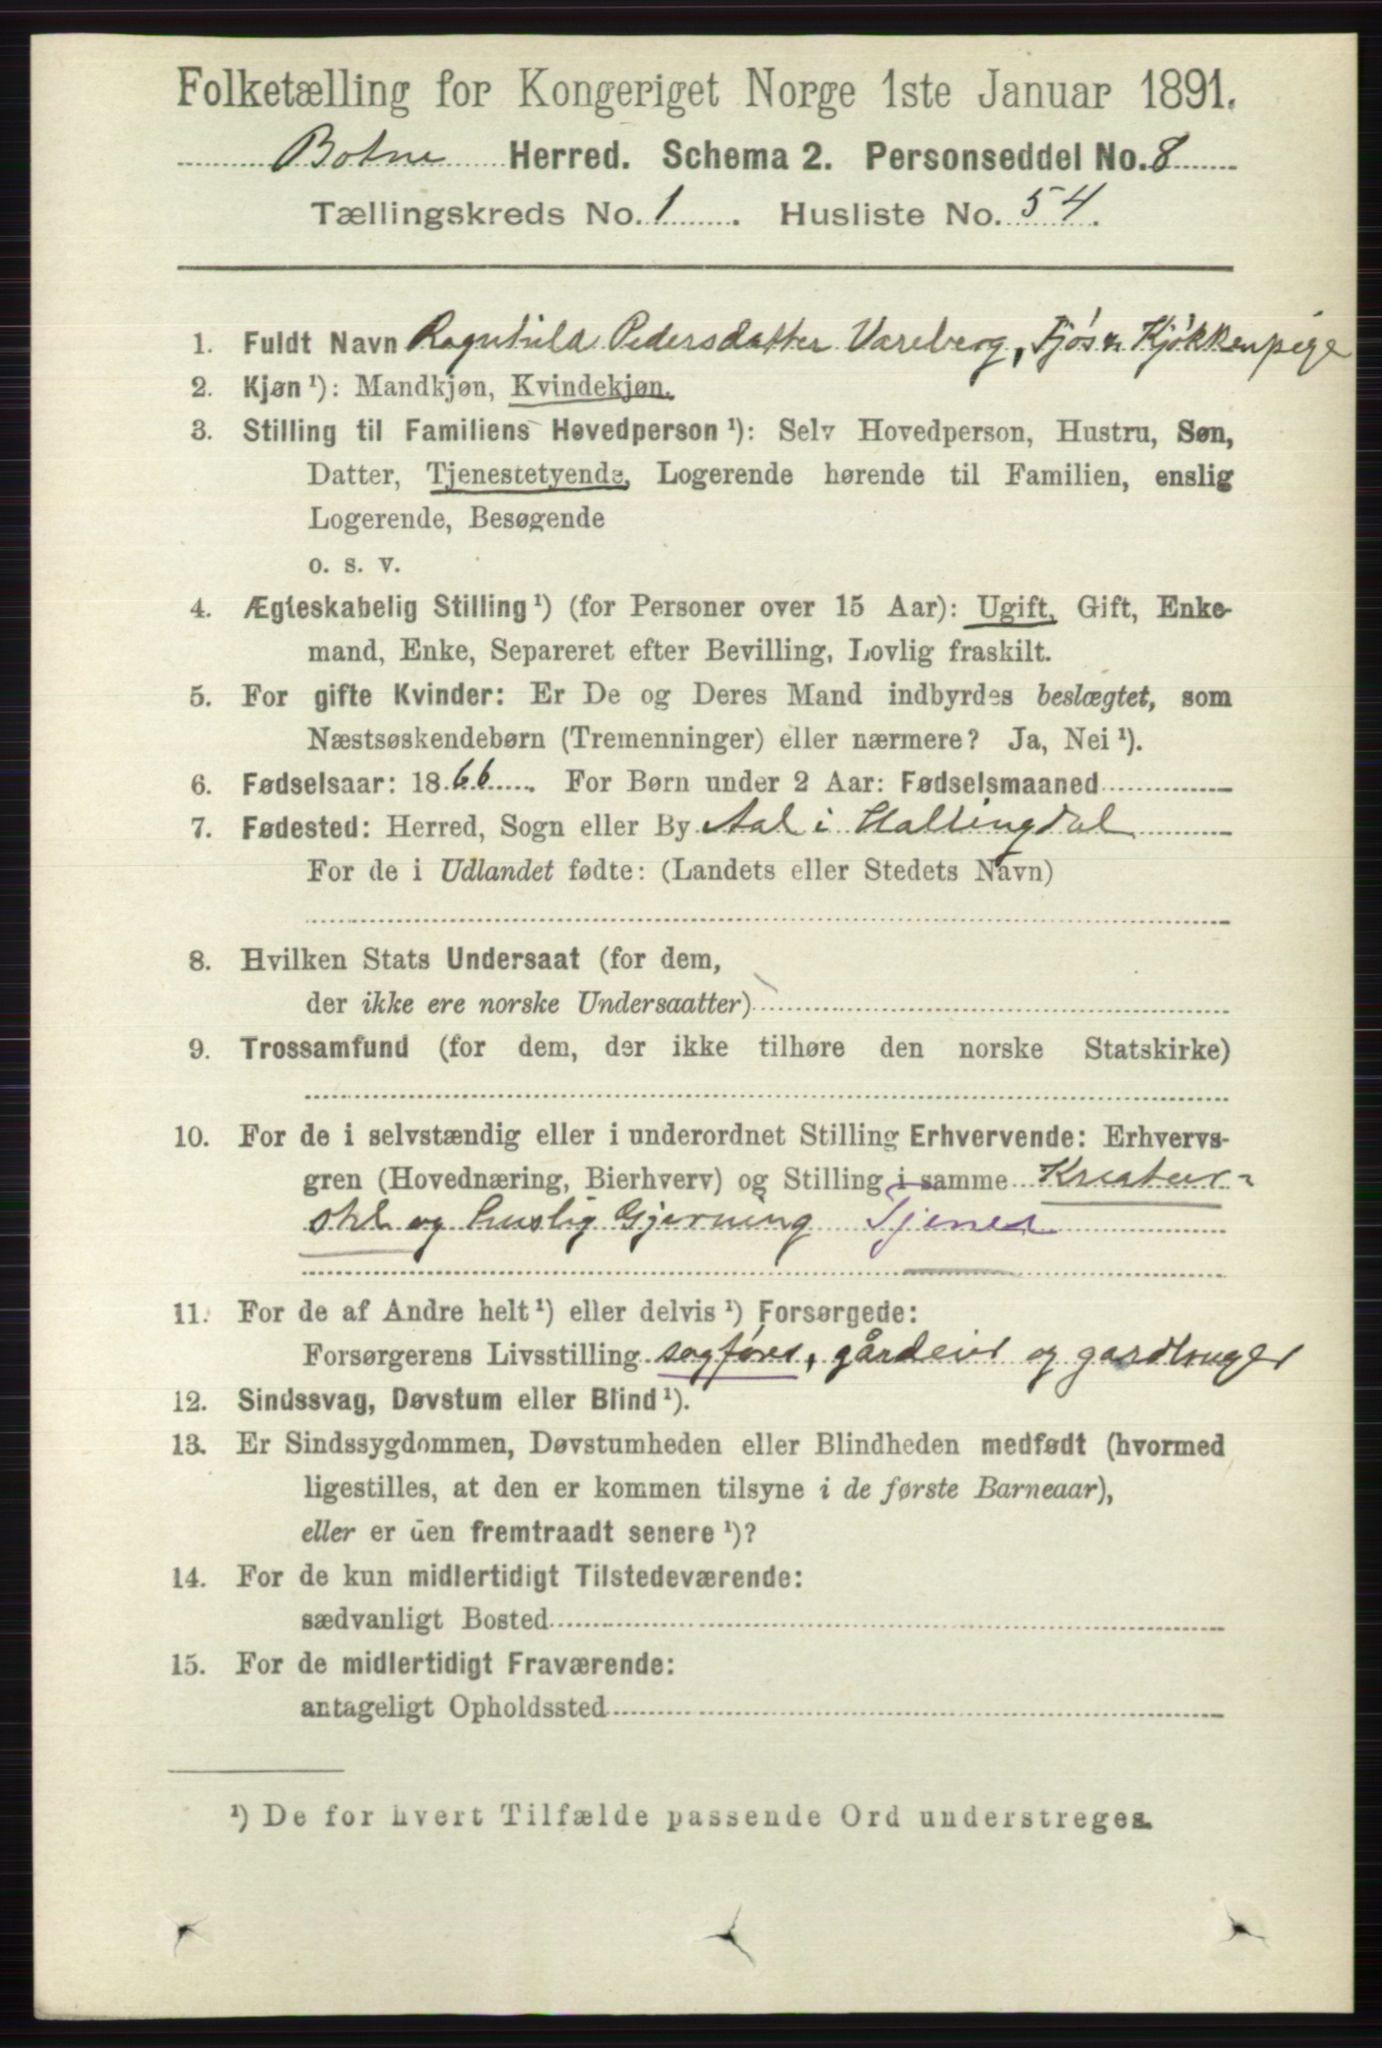 Folketælling for Kongeriget Norge 1ste Januar 1891.
Botne Herred. Schema 2. Personseddel No. 8
Tællingskreds No. 1. Husliste No. 54.
1. Fuldt Navn Ragnhild Pedersdatter Vareberg, Fjøs & Kjøkkenpige
2. Kjøn¹): Mandkjøn, Kvindekjøn.
3. Stilling til Familiens Hovedperson¹): Selv Hovedperson, Hustru, Søn,
Datter, Tjenestetyende, Logerende hørende til Familien, enslig
Logerende, Besøgende
o. s. v.
4. Ægteskabelig Stilling¹) (for Personer over 15 Aar): Ugift, Gift, Enke-
mand, Enke, Separeret efter Bevilling, Lovlig fraskilt.
5. For gifte Kvinder: Er De og Deres Mand indbyrdes beslægtet, som
Næstsøskendebørn (Tremenninger) eller nærmere? Ja, Nei¹).
6. Fødselsaar: 1866. For Børn under 2 Aar: Fødselsmaaned
7. Fødested: Herred, Sogn eller By Aal i Hallingdal
For de i Udlandet fødte: (Landets eller Stedets Navn)
8. Hvilken Stats Undersaat (for dem,
der ikke ere norske Undersaatter)
9. Trossamfund (for dem, der ikke tilhøre den norske Statskirke)
10. For de i selvstændig eller i underordnet Stilling Erhvervende: Erhvervs-
gren (Hovednæring, Bierhverv) og Stilling i samme Kreatur-
stel og huslig Gjerning Tjener
11. For de af Andre helt¹) eller delvis¹) Forsørgede:
Forsørgerens Livsstilling sagfører, gårdeier og gardbruger
12. Sindssvag, Døvstum eller Blind¹).
13. Er Sindssygdommen, Døvstumheden eller Blindheden medfødt (hvormed
ligestilles, at den er kommen tilsyne i de første Barneaar),
eller er den fremtraadt senere¹)?
14. For de kun midlertidigt Tilstedeværende:
sædvanligt Bosted
15. For de midlertidigt Fraværende:
antageligt Opholdssted
¹) De for hvert Tilfælde passende Ord understreges.